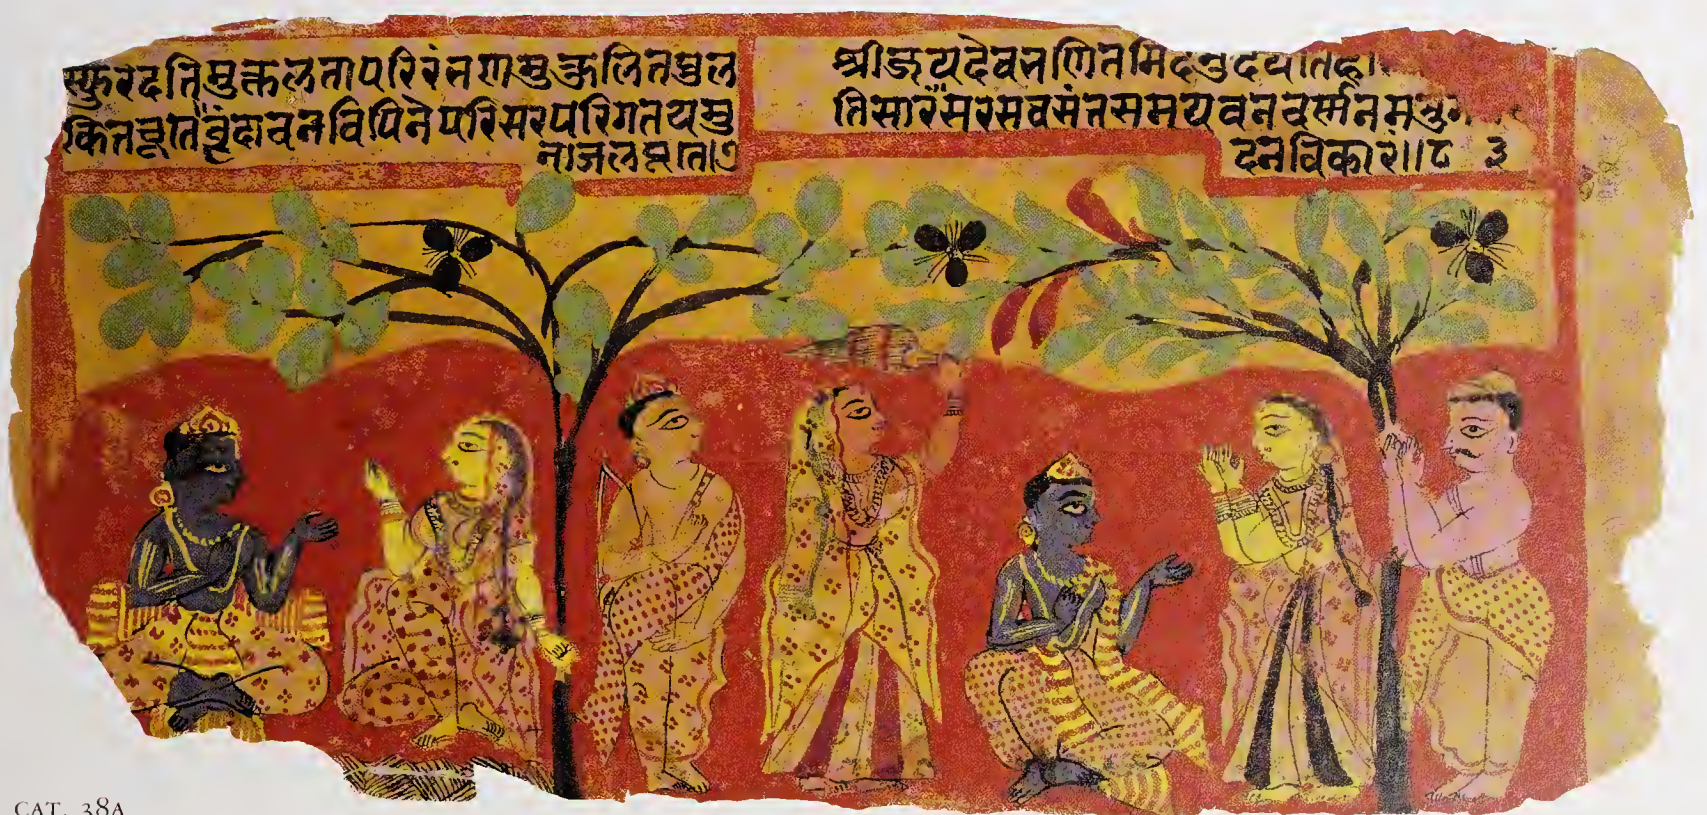 स्फुरदतिमुक्तलतापरिरंभणमुकुलितपुल
कितचूते वृंदावनविपिने परिसरपरिगतयमु
नाजलपूते।७
श्रीजयदेवभणितमिदमुदयतिह
तिसारं सरसवसंतसमयवनवर्णनमनुग
दनविकारं।।८ ३
CAT. 38A